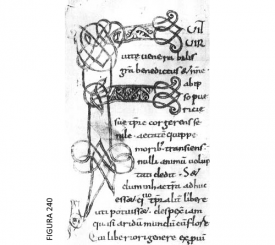 FUIT
VIR
uite uenerabilis
gra benedictus & nomine
ab ip
so pue
ricie
sue tpre cor gerens se
nile. aetate quippe
morib: transiens
nulli animu uolup
tati dedit. Sed
dum in hac terra adhuc
ess& quo tpralit libere
uti potuiss&. despex iam
quasi aridu mundu cu flore
Qui liberiori genere
FIGURA 240